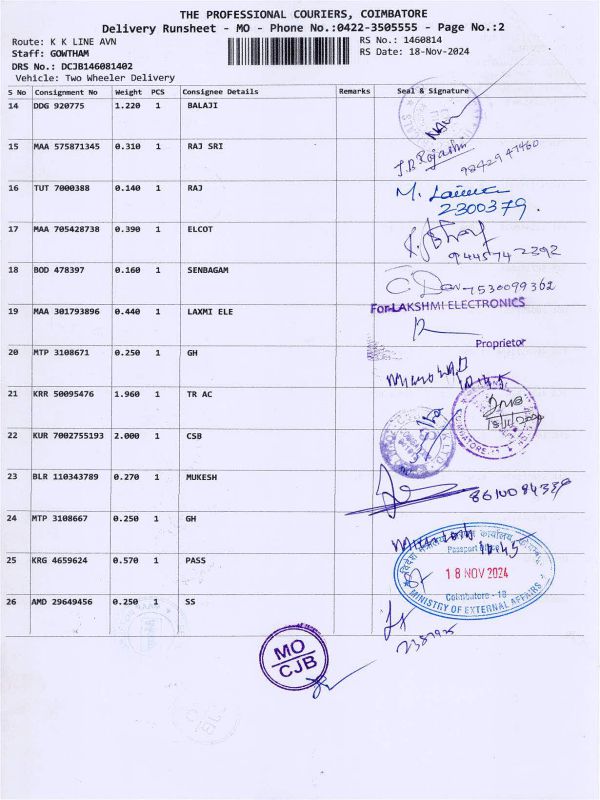 THE PROFESSIONAL COURIERS, COIMBATORE
Delivery Runsheet - MO - Phone No.:0422-3505555 - Page No.:2
Route: K K LINE AVN
RS No.: 1460814
Staff: GOWTHAM
RS Date: 18-Nov-2024
DRS No.: DCJB146081402
Vehicle: Two Wheeler Delivery
S No Consignment No Weight PCS Consignee Details Remarks Seal & Signature
14 DDG 920775 1.220 1 BALAJI
15 MAA 575871345 0.310 1 RAJ SRI
16 TUT 7000388 0.140 1 RAJ
2300379.
17 MAA 705428738 0.390 1 ELCOT
9445742392
18 BOD 478397 0.160 1 SENBAGAM
7530099362
For LAKSHMI ELECTRONICS
19 MAA 301793896 0.440 1 LAXMI ELE
Proprietor
20 MTP 3108671 0.250 1 GH
21 KRR 50095476 1.960 1 TR AC
22 KUR 7002755193 2.000 1 CSB
23 BLR 110343789 0.270 1 MUKESH
24 MTP 3108667 0.250 1 GH
25 KRG 4659624 0.570 1 PASS
Passport
18 NOV 2024
Coimbatore - 18
MINISTRY OF EXTERNAL AFFAIRS
26 AMD 29649456 0.250 1 SS
MO
CJB